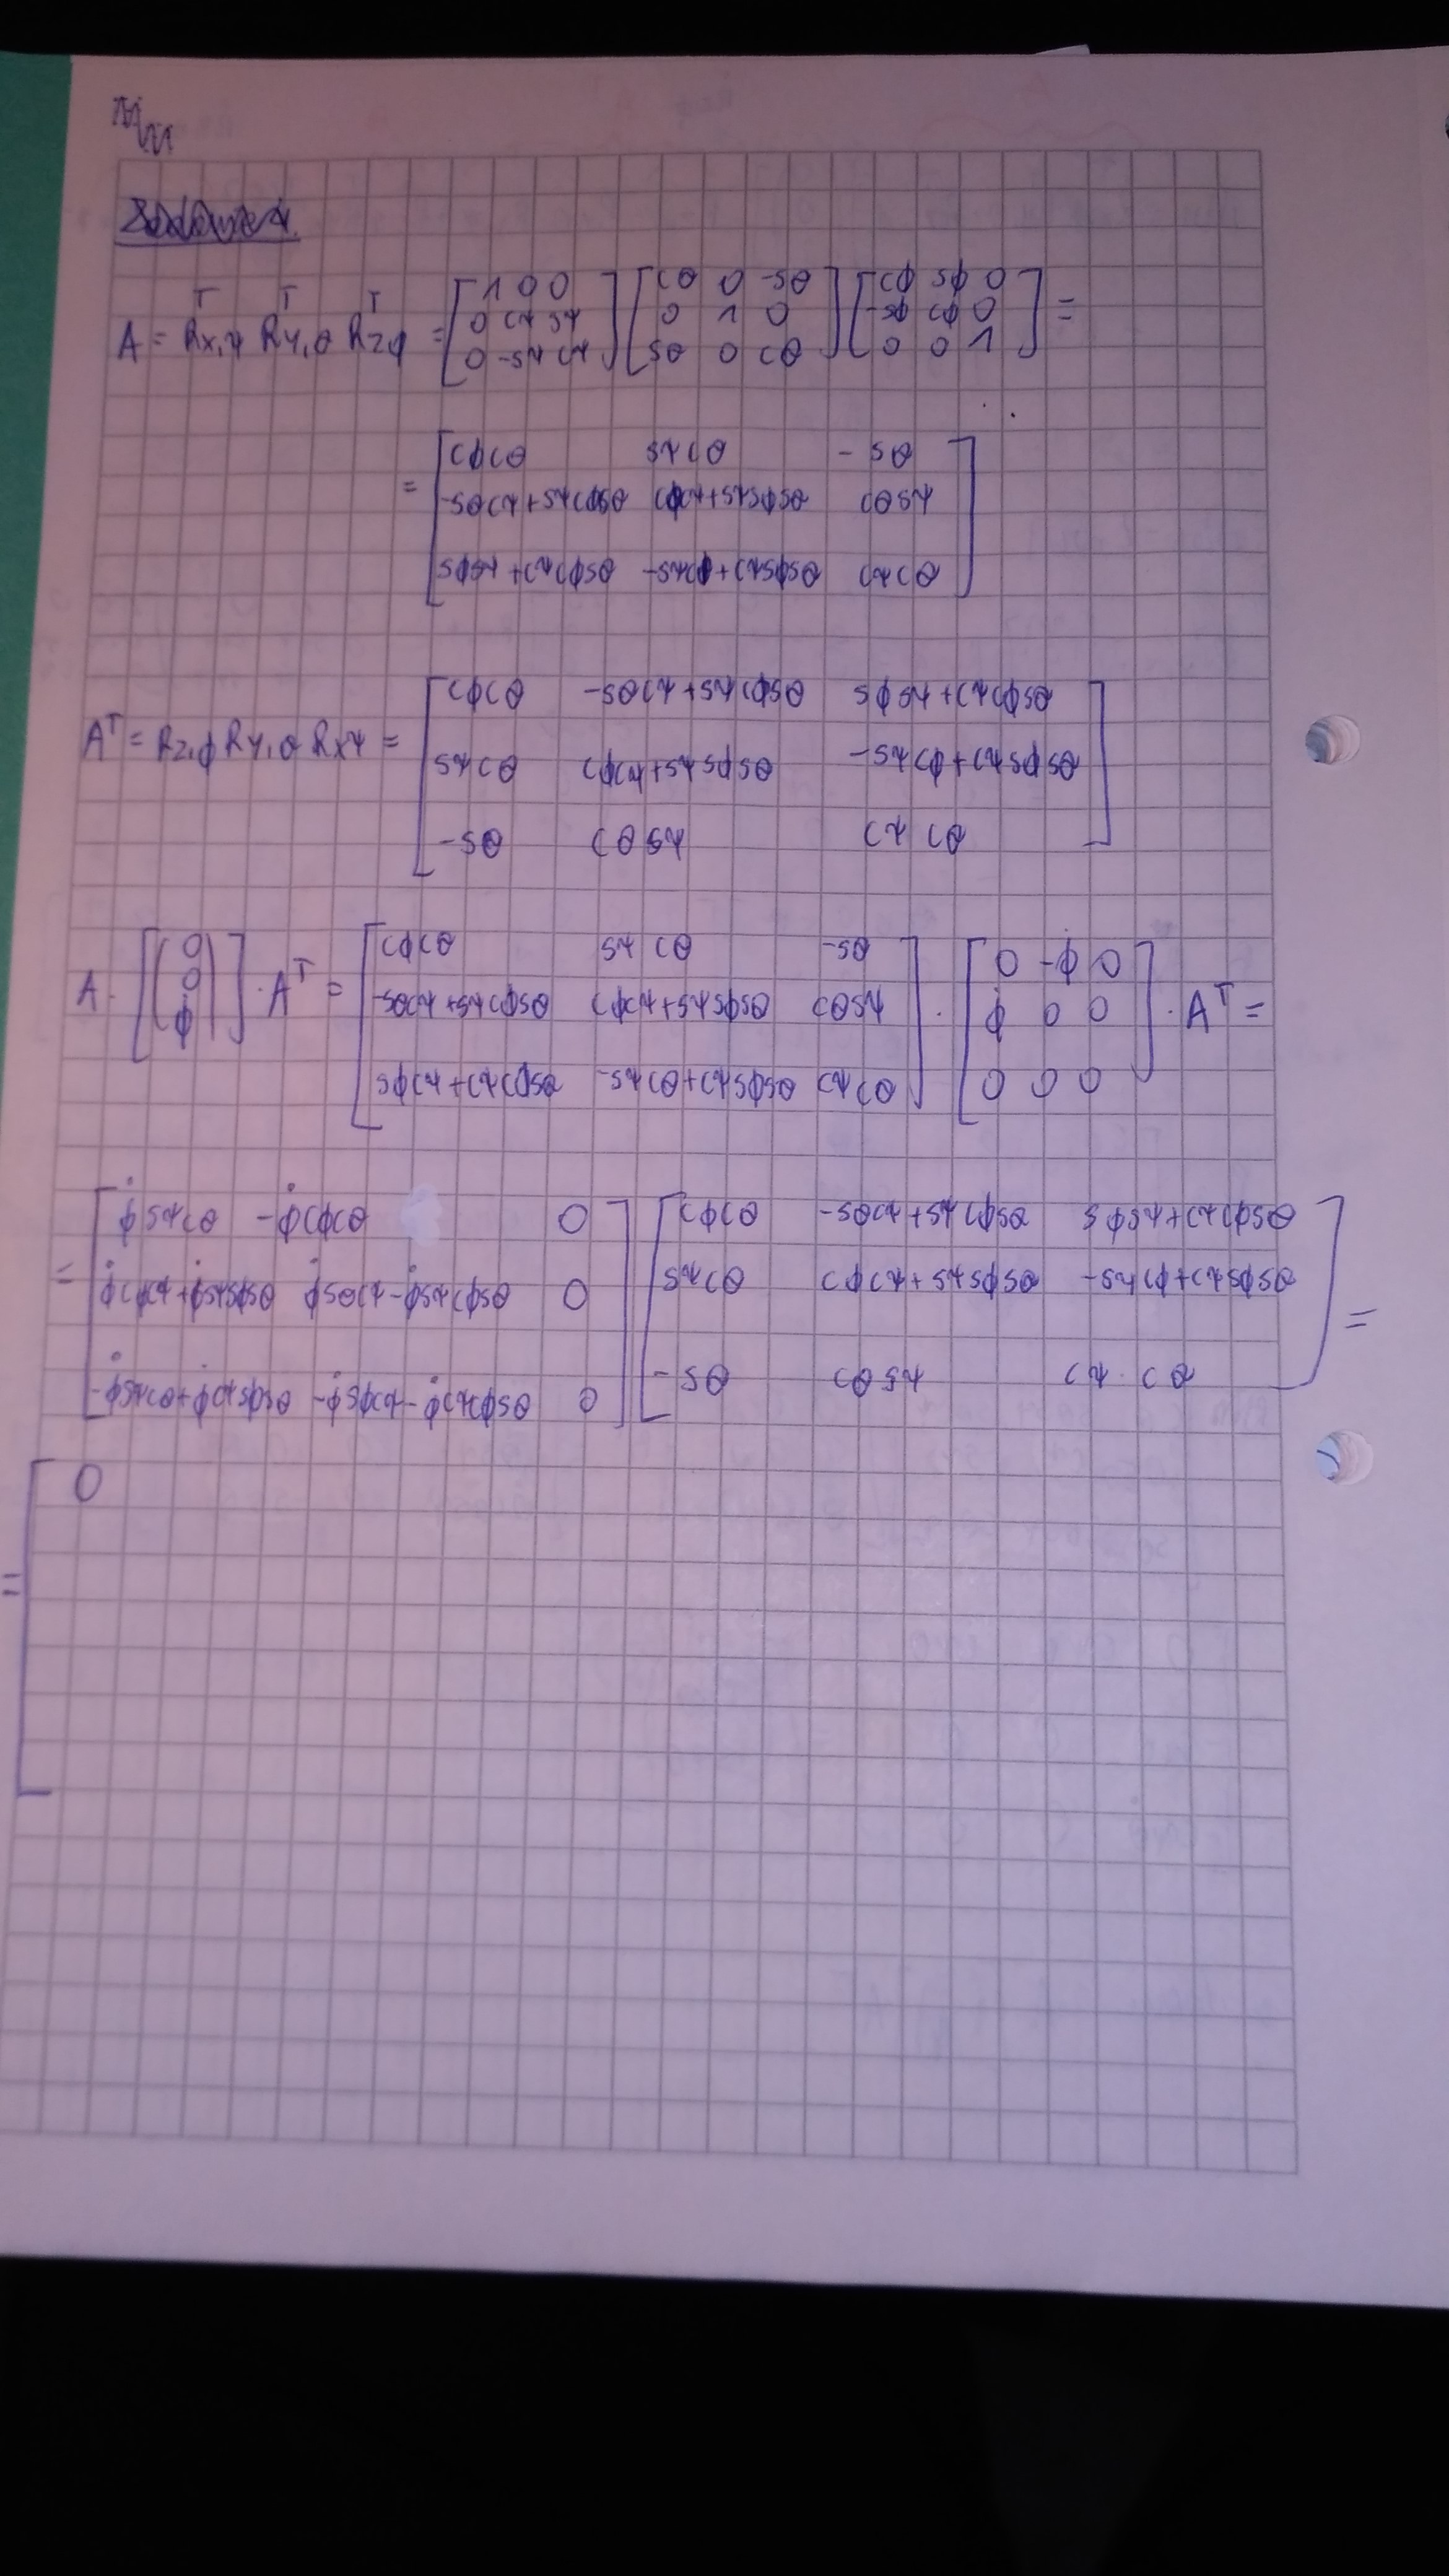 A = Rᵀx,ψ Rᵀy,θ Rᵀzφ = [1 0 0; 0 cψ sψ; 0 -sψ cψ] [cθ 0 -sθ; 0 1 0; sθ 0 cθ] [cφ sφ 0; -sφ cφ 0; 0 0 1] =
= [cφcθ sψcθ -sθ;
-sθcψ+sψcφsθ cφcψ+sψsφsθ cθsψ;
sφsψ+cψcφsθ -sψcφ+cψsφsθ cψcθ]
Aᵀ = Rz,φ Ry,θ Rxψ = [cφcθ -sθcψ+sψcφsθ sφsψ+cψcφsθ;
sψcθ cφcψ+sψsφsθ -sψcφ+cψsφsθ;
-sθ cθsψ cψcθ]
A · [(0; 0; φ̇)] · Aᵀ = [cφcθ sψcθ -sθ; -sθcψ+sψcφsθ cφcψ+sψsφsθ cθsψ; sφcψ+cψcφsθ -sψcθ+cψsφsθ cψcθ] · [0 -φ̇ 0; φ̇ 0 0; 0 0 0] · Aᵀ =
= [φ̇sψcθ -φ̇cφcθ 0; φ̇cφcψ+φ̇sψsφsθ φ̇sθcψ-φ̇sψcφsθ 0; -φ̇sψcθ+φ̇cψsφsθ -φ̇sφcψ-φ̇cψcφsθ 0] [cφcθ -sθcψ+sψcφsθ sφsψ+cψcφsθ; sψcθ cφcψ+sψsφsθ -sψcφ+cψsφsθ; -sθ cθsψ cψ·cθ] =
= [0